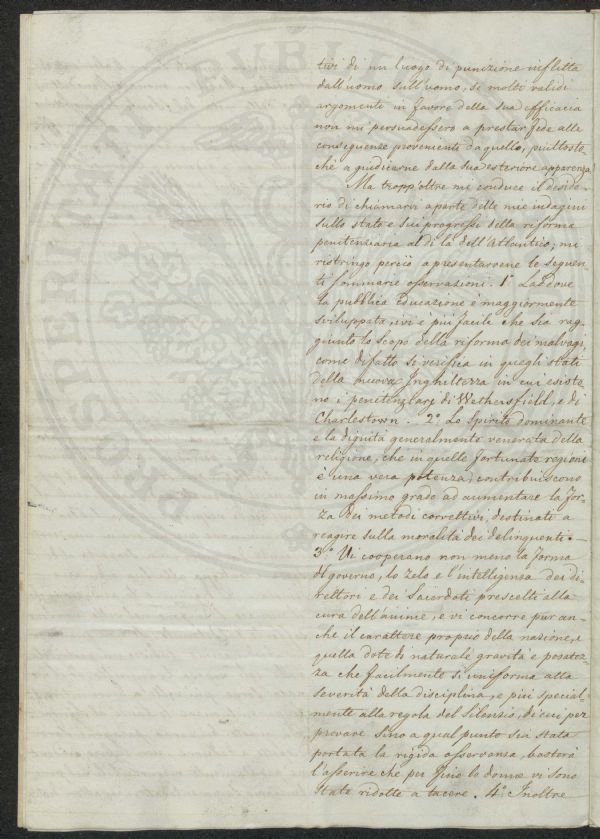 tivi di un luogo di punizione inflitta
dall'uomo sull'uomo, se molti validi
argomenti in favore della sua efficacia
non mi persuadessero a prestar fede alle
conseguenze proveniente da quello, piuttosto
che a giudicarne dalla sua esteriore apparenza.
Ma tropp'oltre mi conduce il deside-
rio di chiamarvi a parte delle mie indagini
sullo stato e sui progressi della riforma
penitenziaria al di là dell'Atlantico; mi
ristringo perciò a presentarvene le seguen-
ti sommarie osservazioni. 1° Laddove
la pubblica Educazione è maggiormente
sviluppata, ivi è più facile che sia rag-
giunto lo scopo della riforma dei malvagi,
come difatto si verifica in quegli stati
della nuova Inghilterra in cui esisto-
no i penitenziarj di Wethersfield, e di
Charlestown. 2° Lo Spirito dominante
e la dignità generalmente venerata della
religione, che in quelle fortunate regioni
è una vera potenza, contribuiscono
in massimo grado ad aumentare la for-
za dei metodi correttivi, destinati a
reagire sulla moralità dei delinquenti. —
3° Vi cooperano non meno la forma
di governo, lo zelo e l'intelligenza dei di-
rettori e dei Sacerdoti prescelti alla
cura dell'anime, e vi concorre pur an-
che il carattere proprio della nazione, e
quella dote di naturale gravità e posatez-
za che facilmente si uniforma alla
severità della disciplina, e più special-
mente alla regola del Silenzio, di cui per
provare sino a qual punto sia stata
portata la rigida osservanza, basterà
l'asserire che per fino le donne vi sono
state ridotte a tacere. 4° Inoltre